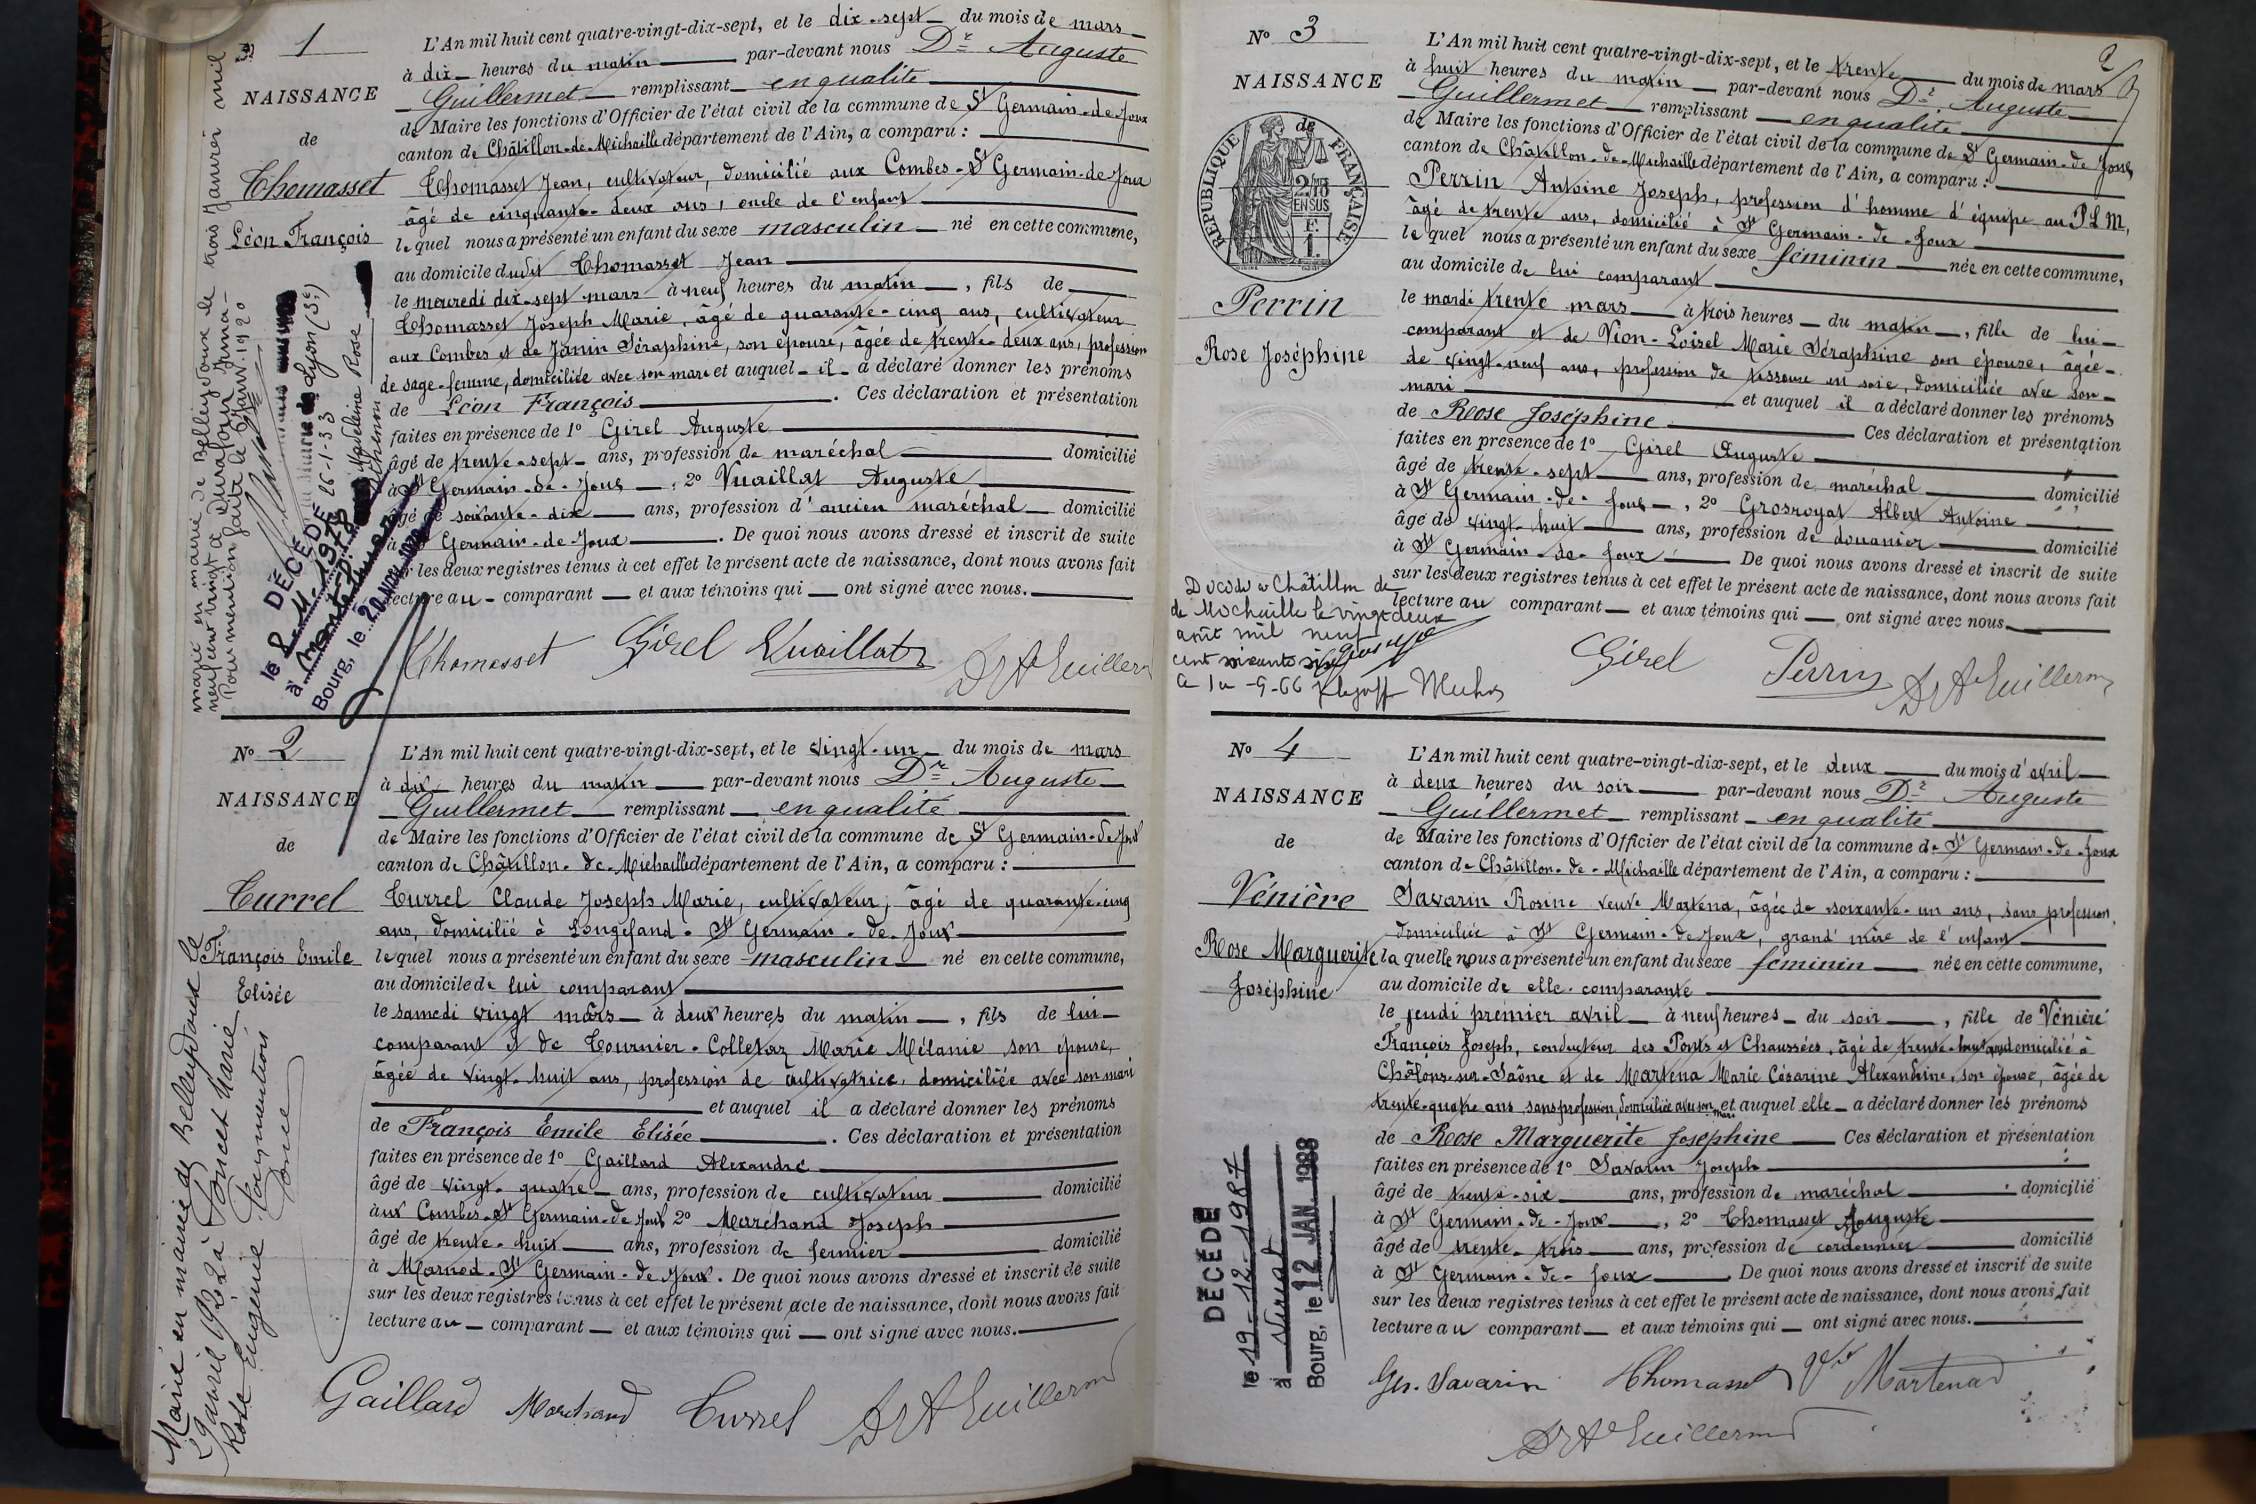 N° 1
NAISSANCE
de
Thomasset
Léon François
L'An mil huit cent quatre-vingt-dix-sept, et le dix-sept du mois de mars
à dix heures du matin par-devant nous Dr Auguste
Guillermet remplissant en qualité
de Maire les fonctions d'Officier de l'état civil de la commune de St Germain-de-Joux
canton de Châtillon-de-Michaille département de l'Ain, a comparu :
Thomasset Jean, cultivateur, domicilié aux Combes-St Germain-de-Joux
âgé de cinquante-deux ans, oncle de l'enfant
lequel nous a présenté un enfant du sexe masculin né en cette commune,
au domicile dudit Thomasset Jean
le mercredi dix-sept mars à neuf heures du matin, fils de
Thomasset Joseph Marie, âgé de quarante-cinq ans, cultivateur
aux Combes et de Janin Séraphine, son épouse, âgée de trente-deux ans, profession
de sage-femme, domiciliée avec son mari et auquel il a déclaré donner les prénoms
de Léon François. Ces déclaration et présentation
faites en présence de 1° Girel Auguste
âgé de trente-sept ans, profession de maréchal domicilié
à St Germain-de-Joux, 2° Vuaillat Auguste
âgé de soixante-dix ans, profession d'ancien maréchal domicilié
à St Germain-de-Joux. De quoi nous avons dressé et inscrit de suite
sur les deux registres tenus à cet effet le présent acte de naissance, dont nous avons fait
lecture au comparant et aux témoins qui ont signé avec nous.
Thomasset Girel Vuaillat Dr A Guillerm
marié en mairie de Belleydoux le trois Janvier mil
neuf cent vingt à Durafour Irma
Pour mention faite le Janv. 1920
Lyon (3e)
26-1-33
Madeleine Rose
DÉCÉDÉ
le 8.11.1978
à Nantua
Bourg, le 20 NOV 1978
N° 2
NAISSANCE
de
Turrel
François Emile
Elisée
L'An mil huit cent quatre-vingt-dix-sept, et le vingt-un du mois de mars
à dix heures du matin par-devant nous Dr Auguste
Guillermet remplissant en qualité
de Maire les fonctions d'Officier de l'état civil de la commune de St Germain-de-Joux
canton de Châtillon-de-Michaille département de l'Ain, a comparu :
Turrel Claude Joseph Marie, cultivateur, âgé de quarante-cinq
ans, domicilié à Longefand-St Germain-de-Joux
lequel nous a présenté un enfant du sexe masculin né en cette commune,
au domicile de lui comparant
le samedi vingt mars à deux heures du matin, fils de lui
comparant et de Tournier-Colletaz Marie Mélanie son épouse,
âgée de vingt-huit ans, profession de cultivatrice, domiciliée avec son mari
et auquel il a déclaré donner les prénoms
de François Emile Elisée. Ces déclaration et présentation
faites en présence de 1° Gaillard Alexandre
âgé de vingt-quatre ans, profession de cultivateur domicilié
aux Combes-St Germain-de-Joux 2° Marchand Joseph
âgé de trente-huit ans, profession de fermier domicilié
à Marnod-St Germain-de-Joux. De quoi nous avons dressé et inscrit de suite
sur les deux registres tenus à cet effet le présent acte de naissance, dont nous avons fait
lecture au comparant et aux témoins qui ont signé avec nous.
Gaillard Marchand Turrel Dr A Guillerm
Marié en mairie de Belleydoux le
29 avril 1922 à Poncet Marie
Rose Eugénie Pour mention
Poncet
2
N° 3
NAISSANCE
de
RÉPUBLIQUE FRANÇAISE
2/10
EN SUS
F.
1.
Perrin
Rose Joséphine
L'An mil huit cent quatre-vingt-dix-sept, et le trente du mois de mars
à huit heures du matin par-devant nous Dr Auguste
Guillermet remplissant en qualité
de Maire les fonctions d'Officier de l'état civil de la commune de St Germain-de-Joux
canton de Châtillon-de-Michaille département de l'Ain, a comparu :
Perrin Antoine Joseph, profession d'homme d'équipe au P L M,
âgé de trente ans, domicilié à St Germain-de-Joux
lequel nous a présenté un enfant du sexe féminin née en cette commune,
au domicile de lui comparant
le mardi trente mars à trois heures du matin, fille de lui
comparant et de Vion-Loisel Marie Séraphine son épouse, âgée
de vingt-neuf ans, profession de tisseuse en soie, domiciliée avec son
mari et auquel il a déclaré donner les prénoms
de Rose Joséphine Ces déclaration et présentation
faites en présence de 1° Girel Auguste
âgé de trente-sept ans, profession de maréchal domicilié
à St Germain-de-Joux, 2° Grosroyat Albert Antoine
âgé de vingt-huit ans, profession de douanier domicilié
à St Germain-de-Joux De quoi nous avons dressé et inscrit de suite
sur les deux registres tenus à cet effet le présent acte de naissance, dont nous avons fait
lecture au comparant et aux témoins qui ont signé avec nous.
Girel Perrin Dr A Guillerm
Décédée à Châtillon de
de Michaille le vingt deux
août mil neuf
cent soixante six
N° 4
NAISSANCE
de
Vénière
Rose Marguerite
Joséphine
L'An mil huit cent quatre-vingt-dix-sept, et le deux du mois d'avril
à deux heures du soir par-devant nous Dr Auguste
Guillermet remplissant en qualité
de Maire les fonctions d'Officier de l'état civil de la commune de St Germain-de-Joux
canton de Châtillon-de-Michaille département de l'Ain, a comparu :
Savarin Rosine veuve Martena, âgée de soixante-un ans, sans profession,
domiciliée à St Germain-de-Joux, grand'mère de l'enfant
laquelle nous a présenté un enfant du sexe féminin née en cette commune,
au domicile de elle-comparante
le jeudi premier avril à neuf heures du soir, fille de Vénière
François Joseph, conducteur des Ponts et Chaussées, âgé de trente-huit ans domicilié à
Châlons-sur-Saône et de Martena Marie Césarine Alexandrine, son épouse, âgée de
trente-quatre ans sans profession, domiciliée avec son mari et auquel elle a déclaré donner les prénoms
de Rose Marguerite Joséphine Ces déclaration et présentation
faites en présence de 1° Savarin Joseph
âgé de trente-six ans, profession de maréchal domicilié
à St Germain-de-Joux, 2° Thomasset Auguste
âgé de trente-trois ans, profession de cordonnier domicilié
à St Germain-de-Joux De quoi nous avons dressé et inscrit de suite
sur les deux registres tenus à cet effet le présent acte de naissance, dont nous avons fait
lecture au comparant et aux témoins qui ont signé avec nous.
Savarin Thomasset Martena
Dr A Guillerm
DÉCÉDÉ
le 19-12-1987
à
Bourg, le 12 JAN. 1988